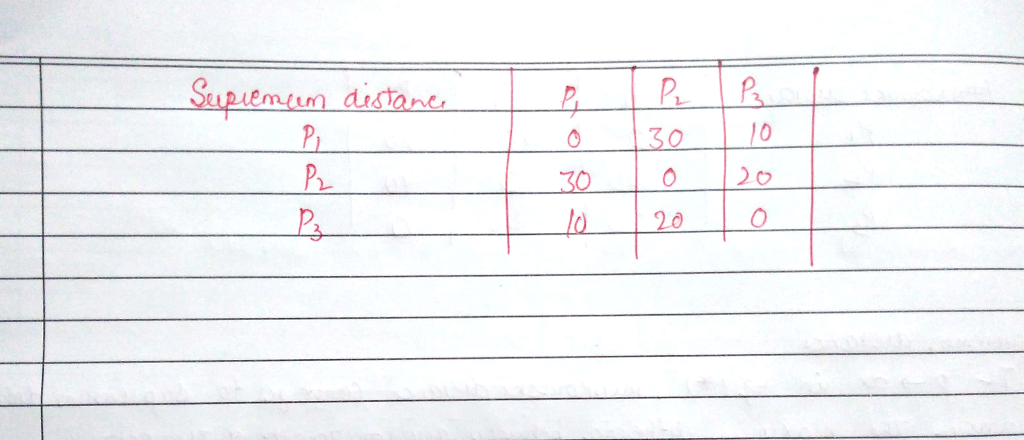 Supremum distance P1 P2 P3
P1 0 30 10
P2 30 0 20
P3 10 20 0